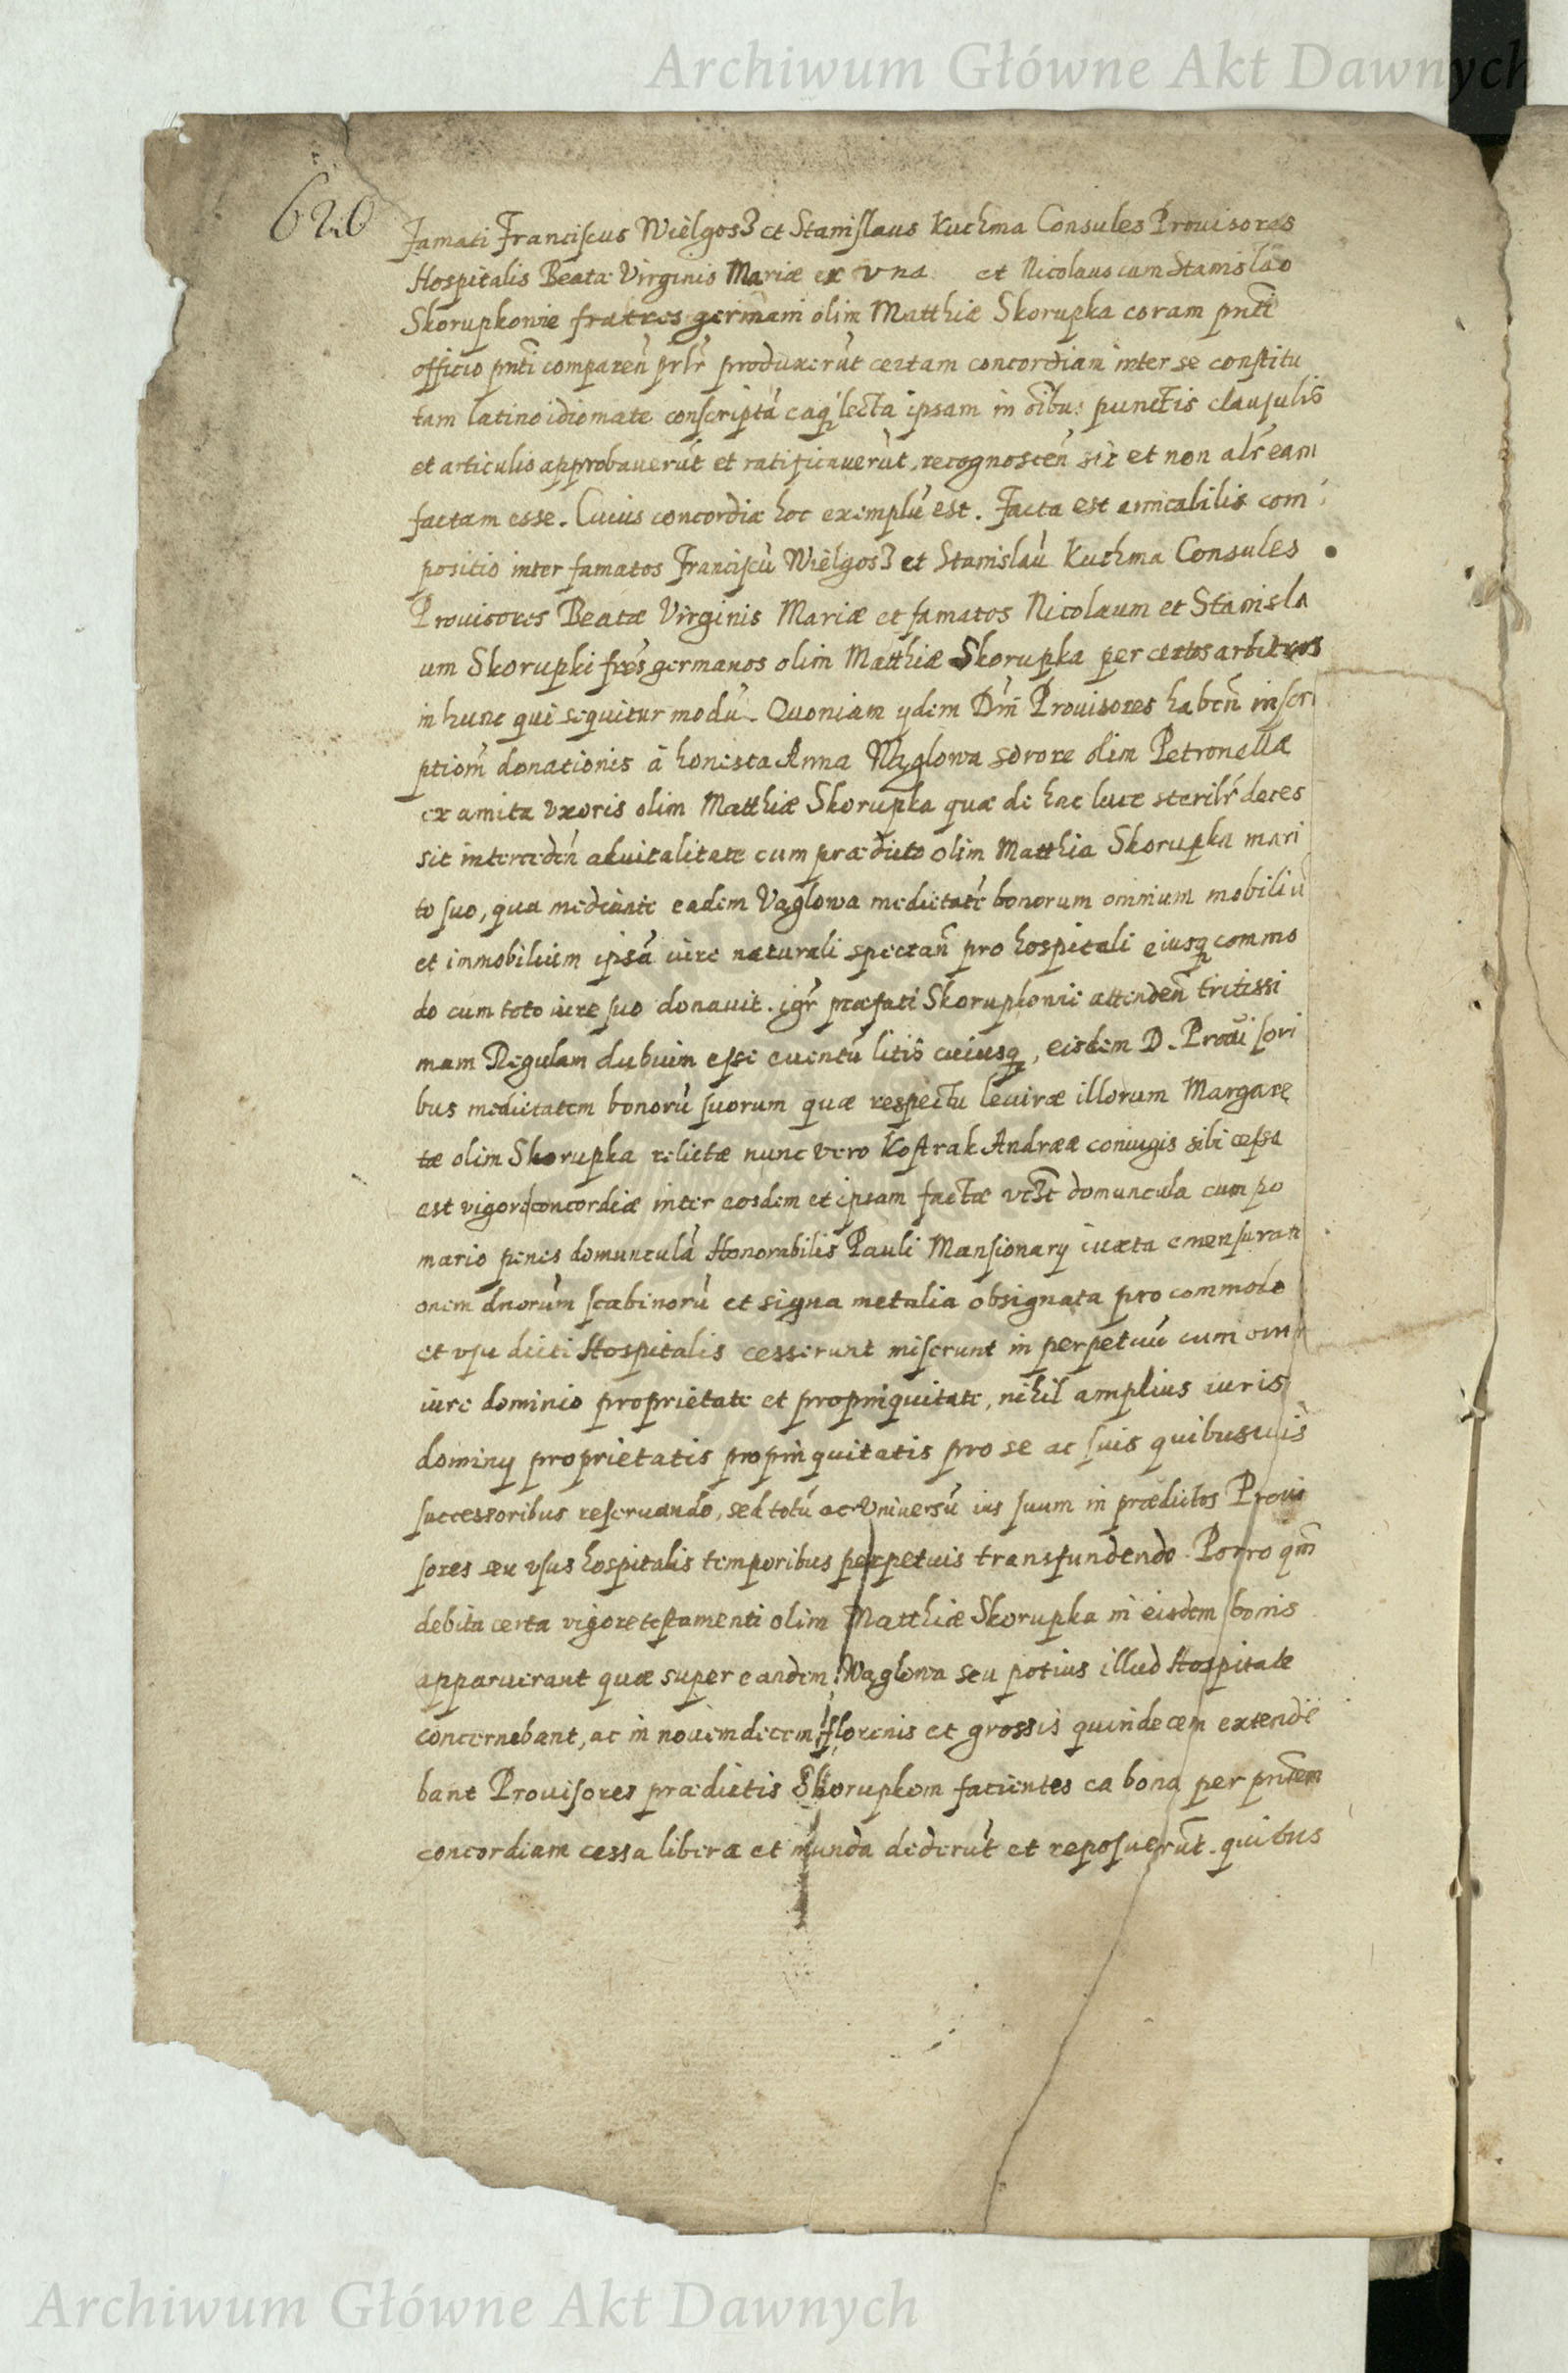 Archiwum Główne Akt Dawnych
626
Famati Franciscus Wielgosz et Stanislaus Kuchma Consules Prouisores
Hospitalis Beatæ Virginis Mariæ ex vna et Nicolaus cum Stanislao
Skorupkowie fratres germani olim Matthiæ Skorupka coram pñti
officio pñti compareñ prłr produxerũt certam concordiam inter se constitu
tam latino idiomate conscriptã eaq lecta ipsam in oĩbus punctis clausulis
et articulis approbauerũt et ratificauerũt, recognosceñ sic et non alr̃ eam
factam esse. Cuius concordiæ hoc exemplũ est. Facta est amicabilis com
positio inter famatos Franciscũ Wielgosz et Stanislaũ Kuchma Consules
Prouisores Beatæ Virginis Mariæ et famatos Nicolaum et Stanisla
um Skorupki fr̃es germanos olim Matthiæ Skorupka per certos arbitros
in hunc qui sequitur modũ. Quoniam ydem Dñi Prouisores habeñ inscri
ptioñ donationis à honesta Anna Waglowa sorore olim Petronellæ
ex amita vxoris olim Matthiæ Skorupka quæ de hac luce sterilr̃ deces
sit intercedeñ aduitalitate cum prædicto olim Matthia Skorupka mari
to suo, qua mediante eadem Vaglowa medietatẽ bonorum omnium mobiliũ
et immobilium ipsã iure naturali spectañ pro hospitali eiusq commo
do cum toto iure suo donauit. igr̃ præfati Skorupkowie attendeñ tritissi
mam Regulam dubium esse euentũ litis cuiusq, eisdem D. Prouisori
bus medietatem bonorũ suorum quæ respectu leuiræ illorum Margare
tæ olim Skorupka relictæ nunc vero Kostrak Andreæ coniugis sibi cessa
est vigore concordiæ inter eosdem et ipsam factæ vczt domuncula cum po
mario penes domunculã Honorabilis Pauli Mansionary iuxta emensurati
onem dnorum scabinorũ et signa metalia obsignata pro commodo
et vsu dicti Hospitalis cesserunt miserunt in perpetuũ cum omni
iure dominio proprietate et propinquitate, nihil amplius iuris
dominy proprietatis propinquitatis pro se ac suis quibusuis
successoribus reseruando, sed totũ ac vniuersũ ius suum in prædictos Proui
sores seu vsus hospitalis temporibus perpetuis transfundendo. Porro qm̃
debita certa vigore testamenti olim Matthiæ Skorupka in eisdem bonis
apparuerant quæ super eandem Waglowa seu potius illud Hospitale
concernebant, ac in nouemdecem florenis et grossis quindecem extende
bant Prouisores prædictis Skorupkom facientes ea bona per pñtem
concordiam cessa libera et munda dederũt et reposuerũt. quibus
Archiwum Główne Akt Dawnych